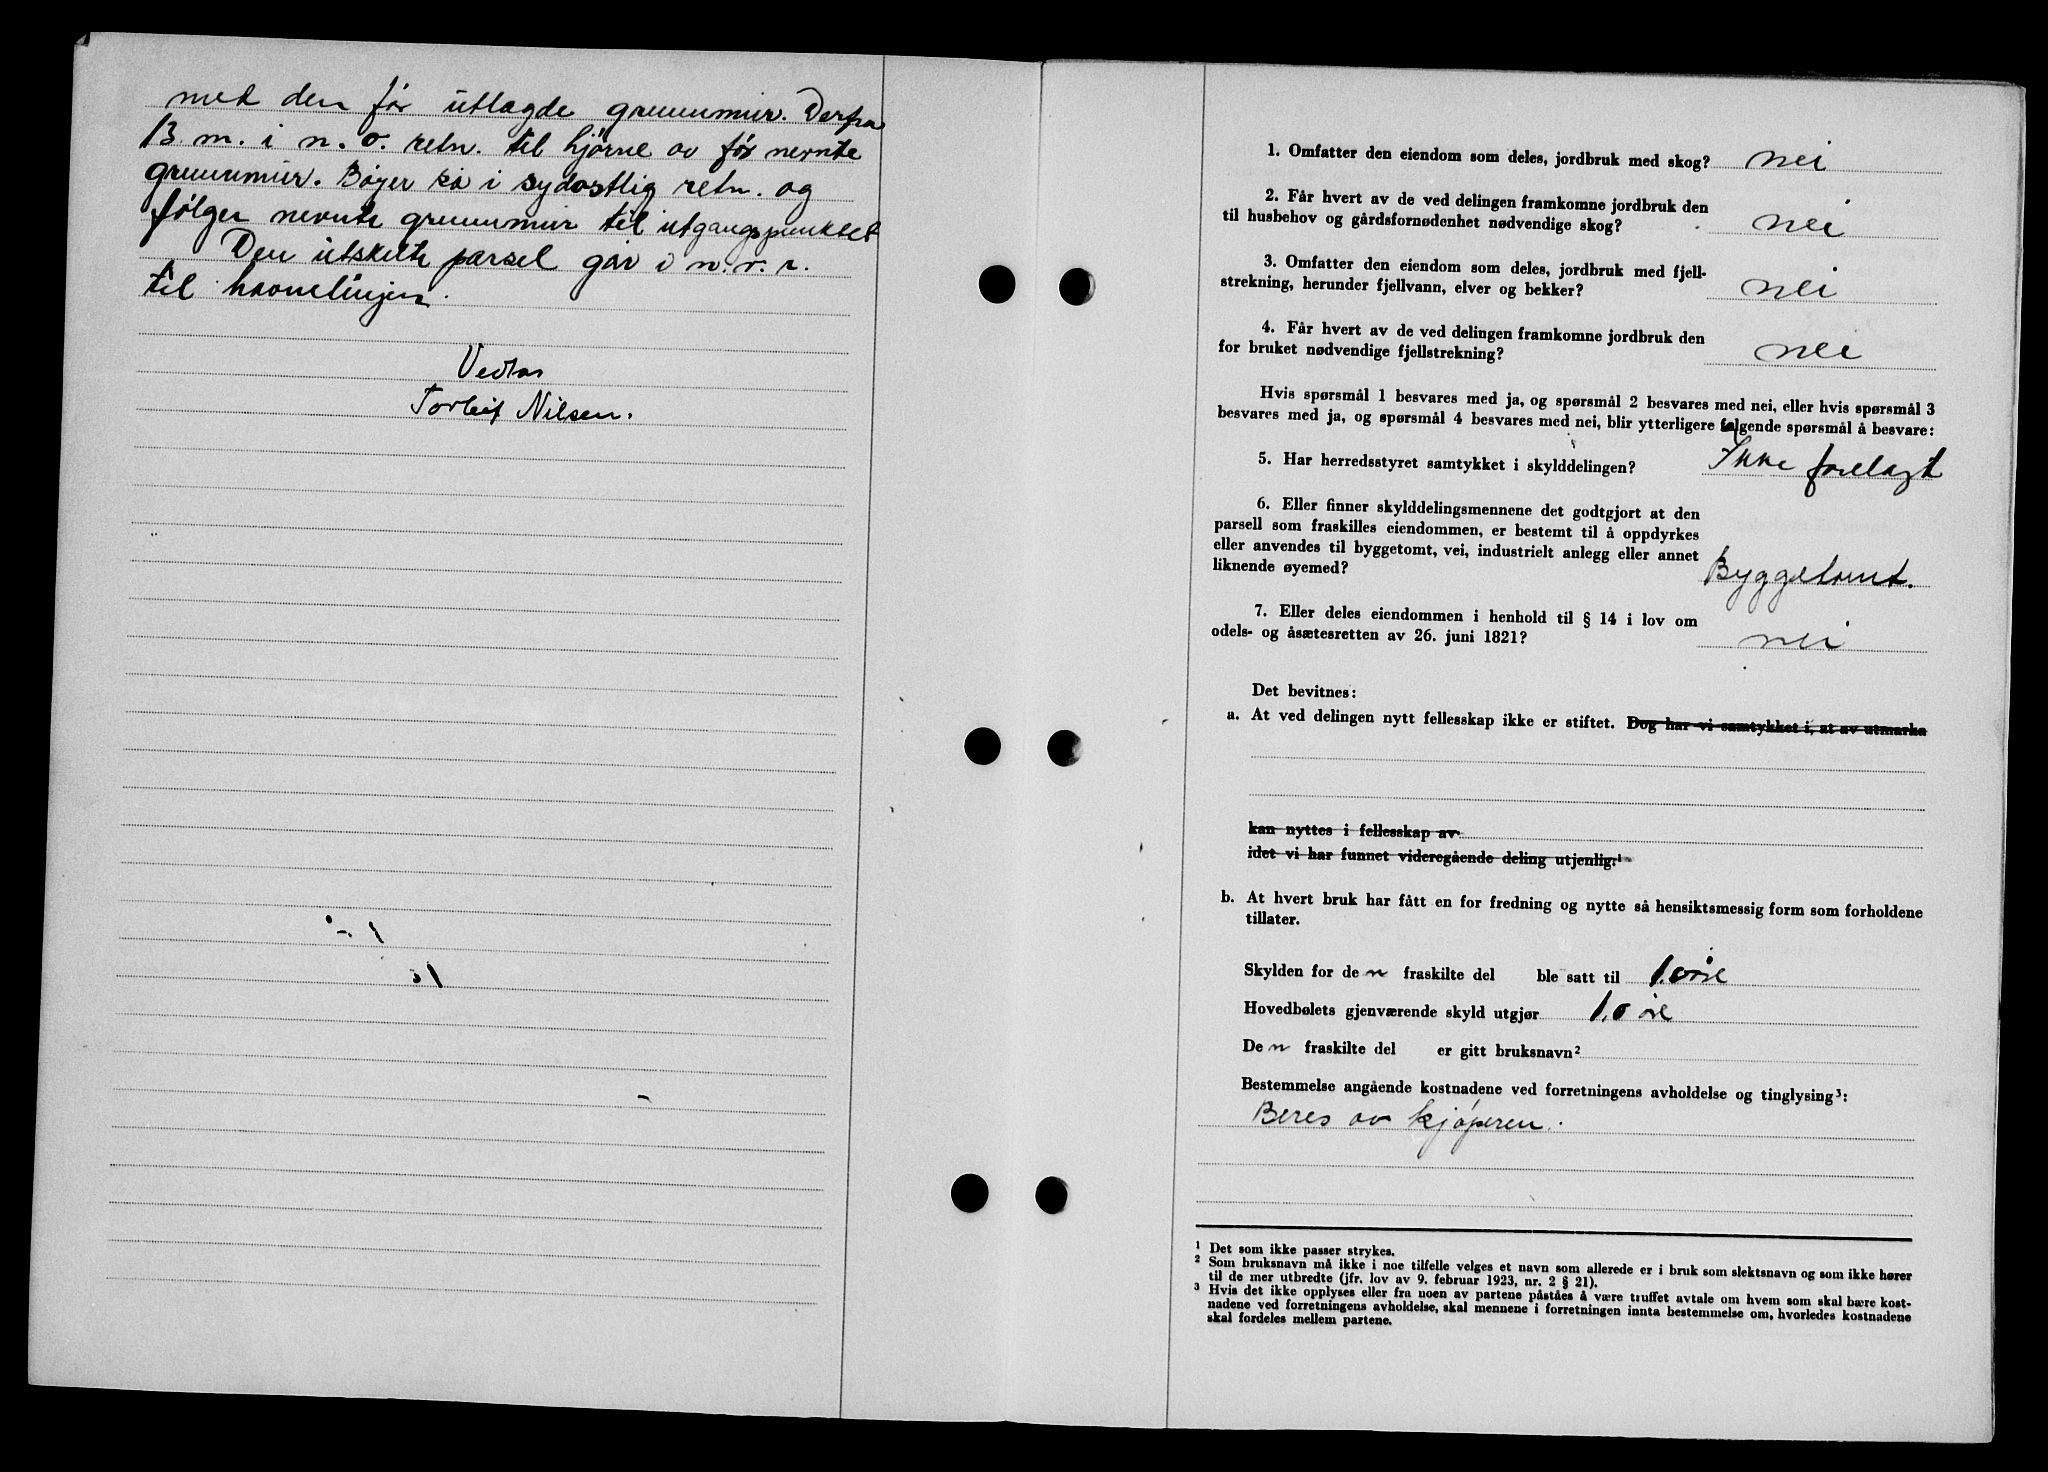 med den før utlagde grunnmur. Derfra
13 m. i n. o. retn. til hjørne av før nevnte
grunnmur. Bøyer så i sydøstlig retn. og
følger nevnte grunnmur til utgangspunktet
Den utskilte parsel går i n. v. r.
til havnelinjen.
Vedtas
Torleif Nilsen.
1. Omfatter den eiendom som deles, jordbruk med skog? nei
2. Får hvert av de ved delingen framkomne jordbruk den
til husbehov og gårdsfornødenhet nødvendige skog? nei
3. Omfatter den eiendom som deles, jordbruk med fjell-
strekning, herunder fjellvann, elver og bekker? nei
4. Får hvert av de ved delingen framkomne jordbruk den
for bruket nødvendige fjellstrekning? nei
Hvis spørsmål 1 besvares med ja, og spørsmål 2 besvares med nei, eller hvis spørsmål 3
besvares med ja, og spørsmål 4 besvares med nei, blir ytterligere følgende spørsmål å besvare:
5. Har herredsstyret samtykket i skylddelingen? Ikke forelagt
6. Eller finner skylddelingsmennene det godtgjort at den
parsell som fraskilles eiendommen, er bestemt til å oppdyrkes
eller anvendes til byggetomt, vei, industrielt anlegg eller annet
liknende øyemed? Byggetomt.
7. Eller deles eiendommen i henhold til § 14 i lov om
odels- og åsætesretten av 26. juni 1821? nei
Det bevitnes:
a. At ved delingen nytt fellesskap ikke er stiftet. Dog har vi samtykket i, at av utmarka
kan nyttes i fellesskap av
idet vi har funnet videregående deling utjenlig.¹
b. At hvert bruk har fått en for fredning og nytte så hensiktsmessig form som forholdene
tillater.
Skylden for den fraskilte del ble satt til 1. øre
Hovedbølets gjenværende skyld utgjør 1.0 øre
Den fraskilte del er gitt bruksnavn²
Bestemmelse angående kostnadene ved forretningens avholdelse og tinglysing³:
Beres av kjøperen.
¹ Det som ikke passer strykes.
² Som bruksnavn må ikke i noe tilfelle velges et navn som allerede er i bruk som slektsnavn og som ikke hører
til de mer utbredte (jfr. lov av 9. februar 1923, nr. 2 § 21).
³ Hvis det ikke opplyses eller fra noen av partene påståes å være truffet avtale om hvem som skal bære kost-
nadene ved forretningens avholdelse, skal mennene i forretningen innta bestemmelse om, hvorledes kostnadene
skal fordeles mellem partene.